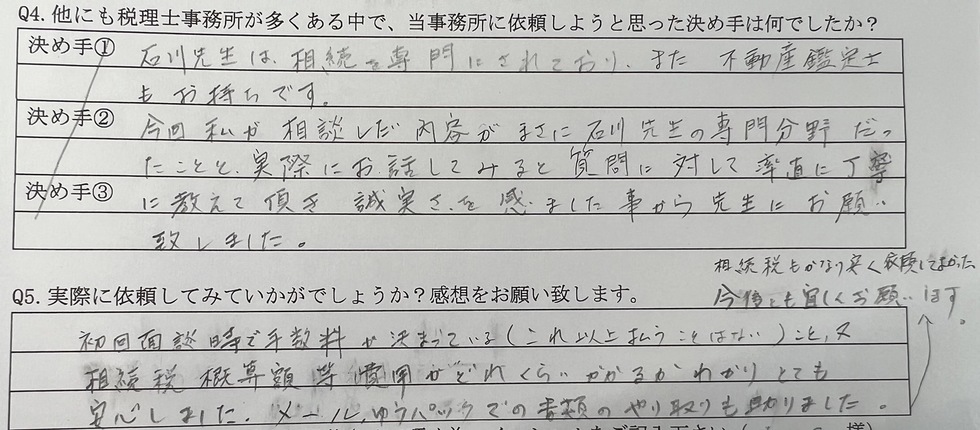 Q4. 他にも税理士事務所が多くある中で、当事務所に依頼しようと思った決め手は何でしたか？
決め手① 石川先生は、相続を専門にされており、また 不動産鑑定士
もお持ちです。
決め手② 今回私が相談しだ内容がまさに石川先生の専門分野だっ
たことと、実際にお話してみると質問に対して率直に丁寧
決め手③ に教えて頂き 誠実さを感じました事から先生にお願い
致しました。
相続税もかなり安く依頼してよかった、
今後とも宜しくお願いします。
Q5. 実際に依頼してみていかがでしょうか？感想をお願い致します。
初回面談時で手数料が決まっている（これ以上払うことはない）こと、又
相続税概算額等費用がどれくらいかかるかわかりとても
安心しました。メール、ゆうパックでの書類のやり取りも助りました。